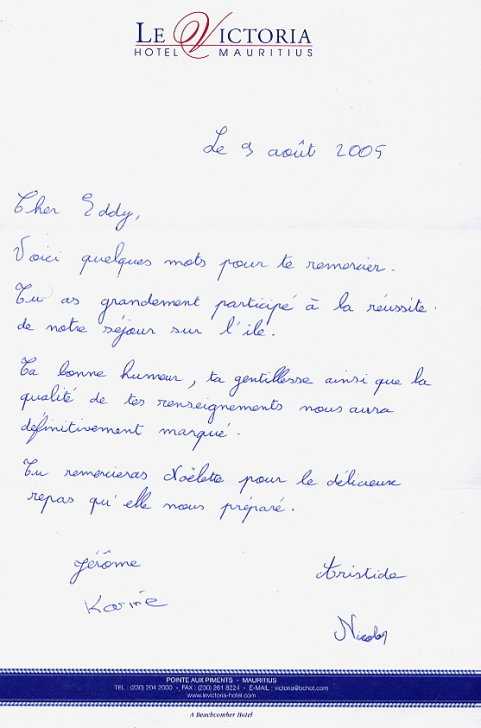 LE VICTORIA
HOTEL MAURITIUS
Le 9 août 2005
Cher Eddy,
Voici quelques mots pour te remercier.
Tu as grandement participé à la réussite
de notre séjour sur l'île.
Ta bonne humeur, ta gentillesse ainsi que la
qualité de tes renseignements nous aura
définitivement marqué.
Tu remercieras Noëlette pour le délicieux
repas qu'elle nous préparé.
Jérôme
Aristide
Karine
Nicolas
POINTE AUX PIMENTS - MAURITIUS
TEL : (230) 204 2000 - FAX : (230) 261 8224 - E-MAIL : victoria@bchot.com
www.levictoria-hotel.com
A Beachcomber Hotel